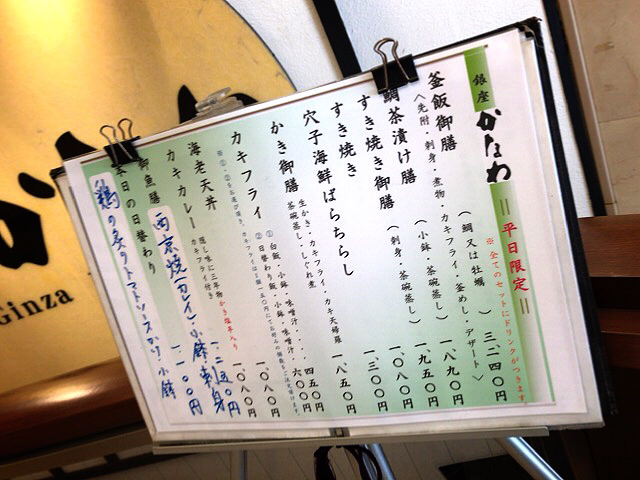 銀座 かなわ
＝平日限定＝
※全てのセットにドリンクがつきます
釜飯御膳 （鯛又は牡蠣） 三、二四〇円
〈先附・刺身・煮物・カキフライ・釜めし・デザート〉
鯛茶漬け膳 （小鉢・茶碗蒸し） 一、八九〇円
すき焼き御膳 （刺身・茶碗蒸し） 一、九五〇円
すき焼き 一、〇八〇円
穴子海鮮ばらちらし 一、三〇〇円
かき御膳 生かき・カキフライ・カキ天婦羅 茶碗蒸し・しぐれ煮 一、八五〇円
カキフライ
①白飯、小鉢、味噌汁・・・ 四五〇円
②日替わり飯、小鉢、味噌汁・ 六〇〇円
海老天丼 一、〇八〇円
カキカレー 隠し味に三年物かき塩辛入り カキフライ付き 一、〇八〇円
御魚膳 西京焼(カレイ)・小鉢・刺身 一、二五〇円
本日の日替わり 一、一〇〇円
鶏の炙りトマトソースかけ・小鉢
Ginza